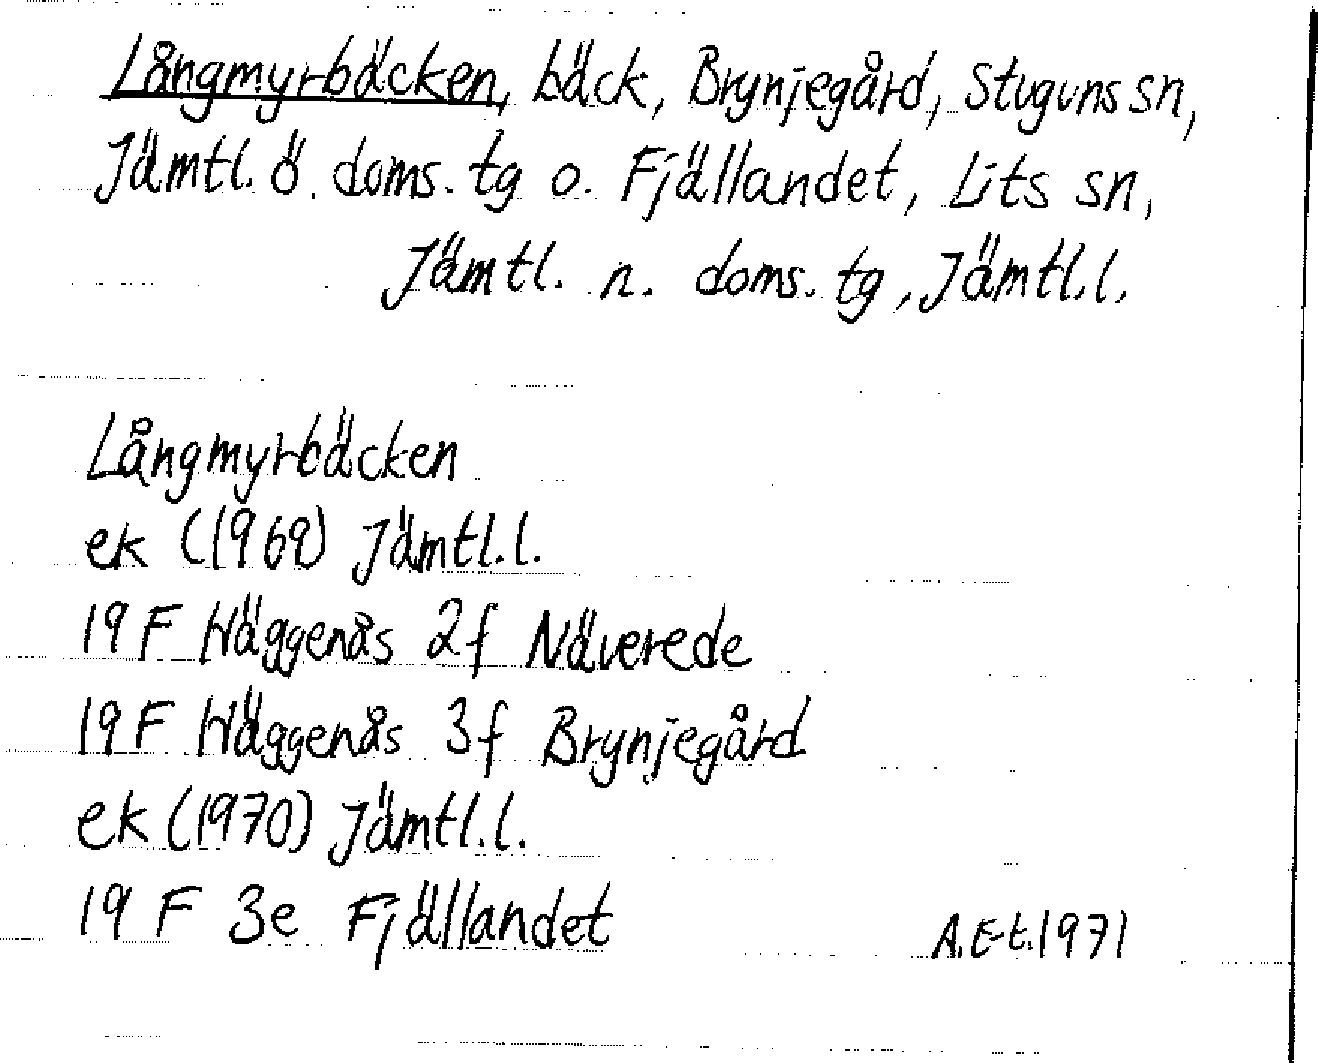 Långmyrbäcken, bäck, Brynjegård, Stuguns sn,
Jämtl. ö. doms. tg o. Fjällandet, Lits sn,
Jämtl. n. doms. tg, Jämtl.l.
Långmyrbäcken
ek (1969) Jämtl.l.
19 F Häggenås 2f Näverede
19 F Häggenås 3f Brynjegård
ek (1970) Jämtl.l.
19 F 3e Fjällandet
A.E-t. 1971